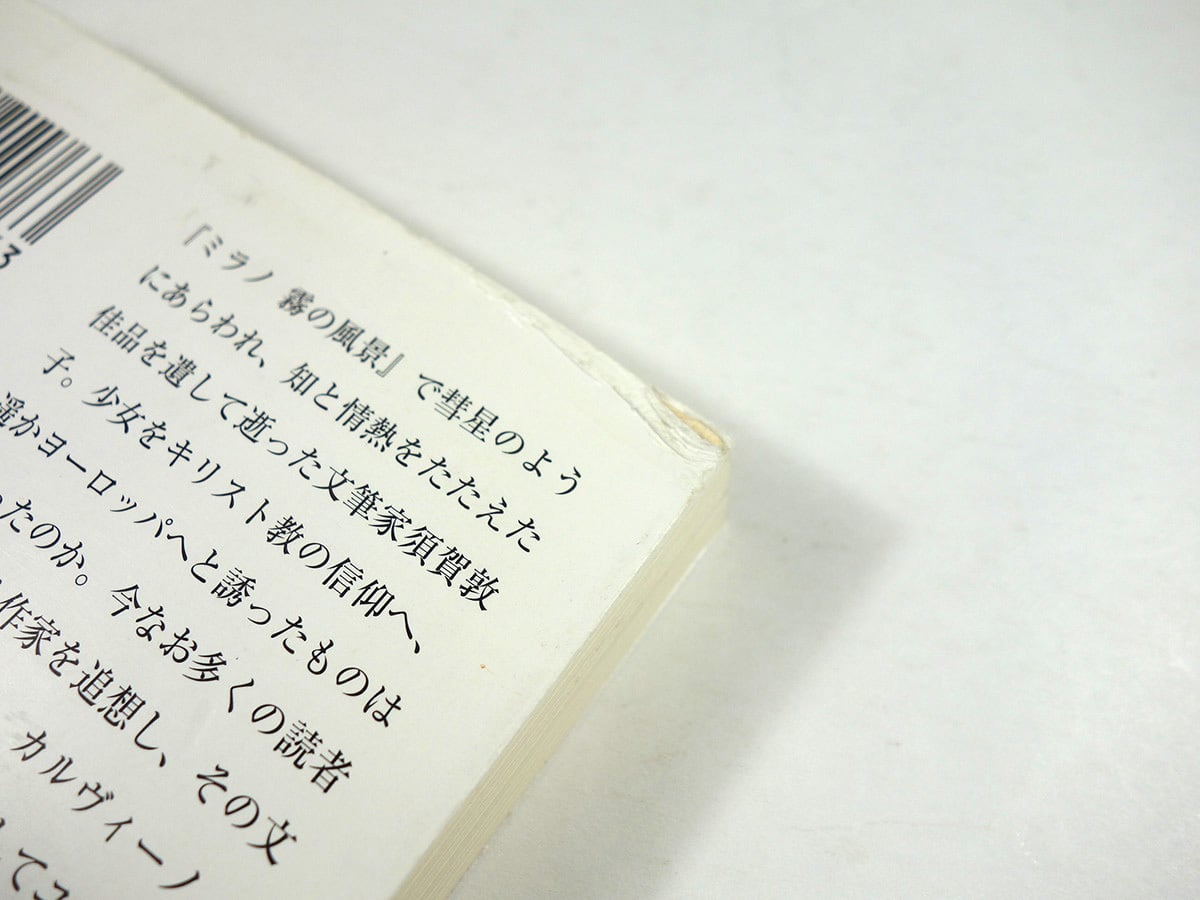 3
『ミラノ 霧の風景』で彗星のよう
にあらわれ、知と情熱をたたえた
佳品を遺して逝った文筆家須賀敦
子。少女をキリスト教の信仰へ、
遥かヨーロッパへと誘ったものは
ったのか。今なお多くの読者
作家を追想し、その文
カルヴィーノ
して